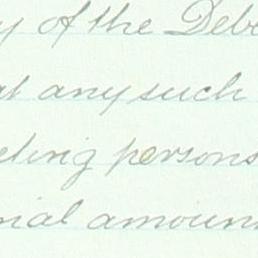 y of the Debe
at any such
eting persons
nial amoun